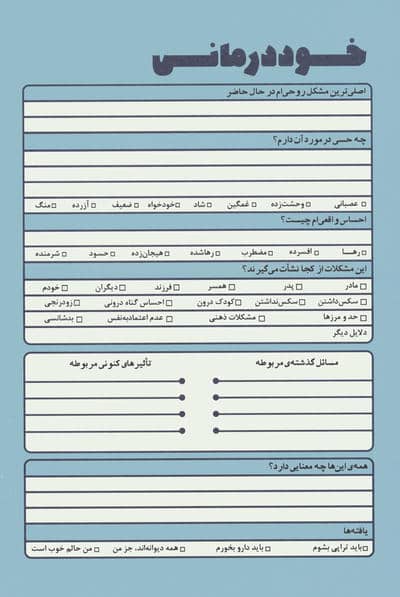 خوددرمانی
اصلی‌ترین مشکل روحی‌ام در حال حاضر
چه حسی در مورد آن دارم؟
عصبانی وحشت‌زده غمگین شاد خودخواه ضعیف آزرده منگ
احساس واقعی‌ام چیست؟
رها افسرده مضطرب رهاشده هیجان‌زده حسود شرمنده
این مشکلات از کجا نشأت می‌گیرند؟
مادر پدر همسر فرزند دیگران خودم
سکس‌داشتن سکس‌نداشتن کودک درون احساس گناه درونی زودرنجی
حد و مرزها مشکلات ذهنی عدم اعتمادبه‌نفس بدشانسی
دلایل دیگر
مسائل گذشته‌ی مربوطه تأثیرهای کنونی مربوطه
همه‌ی این‌ها چه معنایی دارد؟
یافته‌ها
باید تراپی بشوم باید دارو بخورم همه دیوانه‌اند، جز من من حالم خوب است